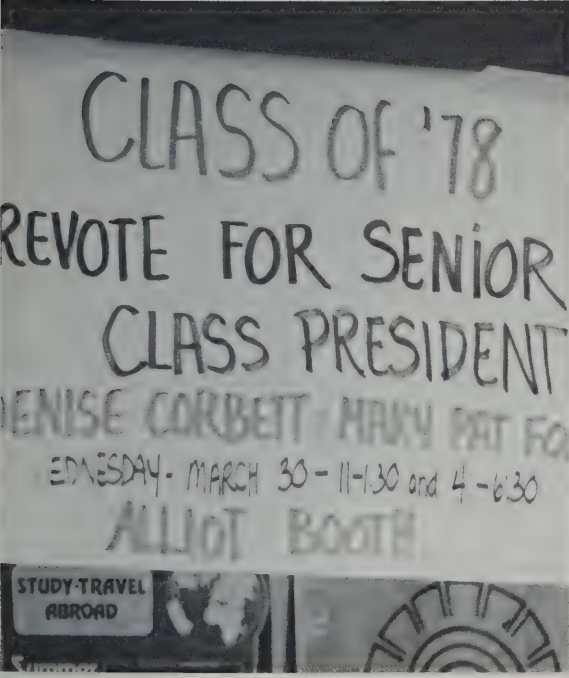 CLASS OF '78
REVOTE FOR SENIOR
CLASS PRESIDENT
ENISE CORBETT MARY PAT FO
EDNESDAY - MARCH 30 - 11-1:30 and 4 - 6:30
ALLIOT BOOTH
STUDY-TRAVEL
ABROAD
Summer